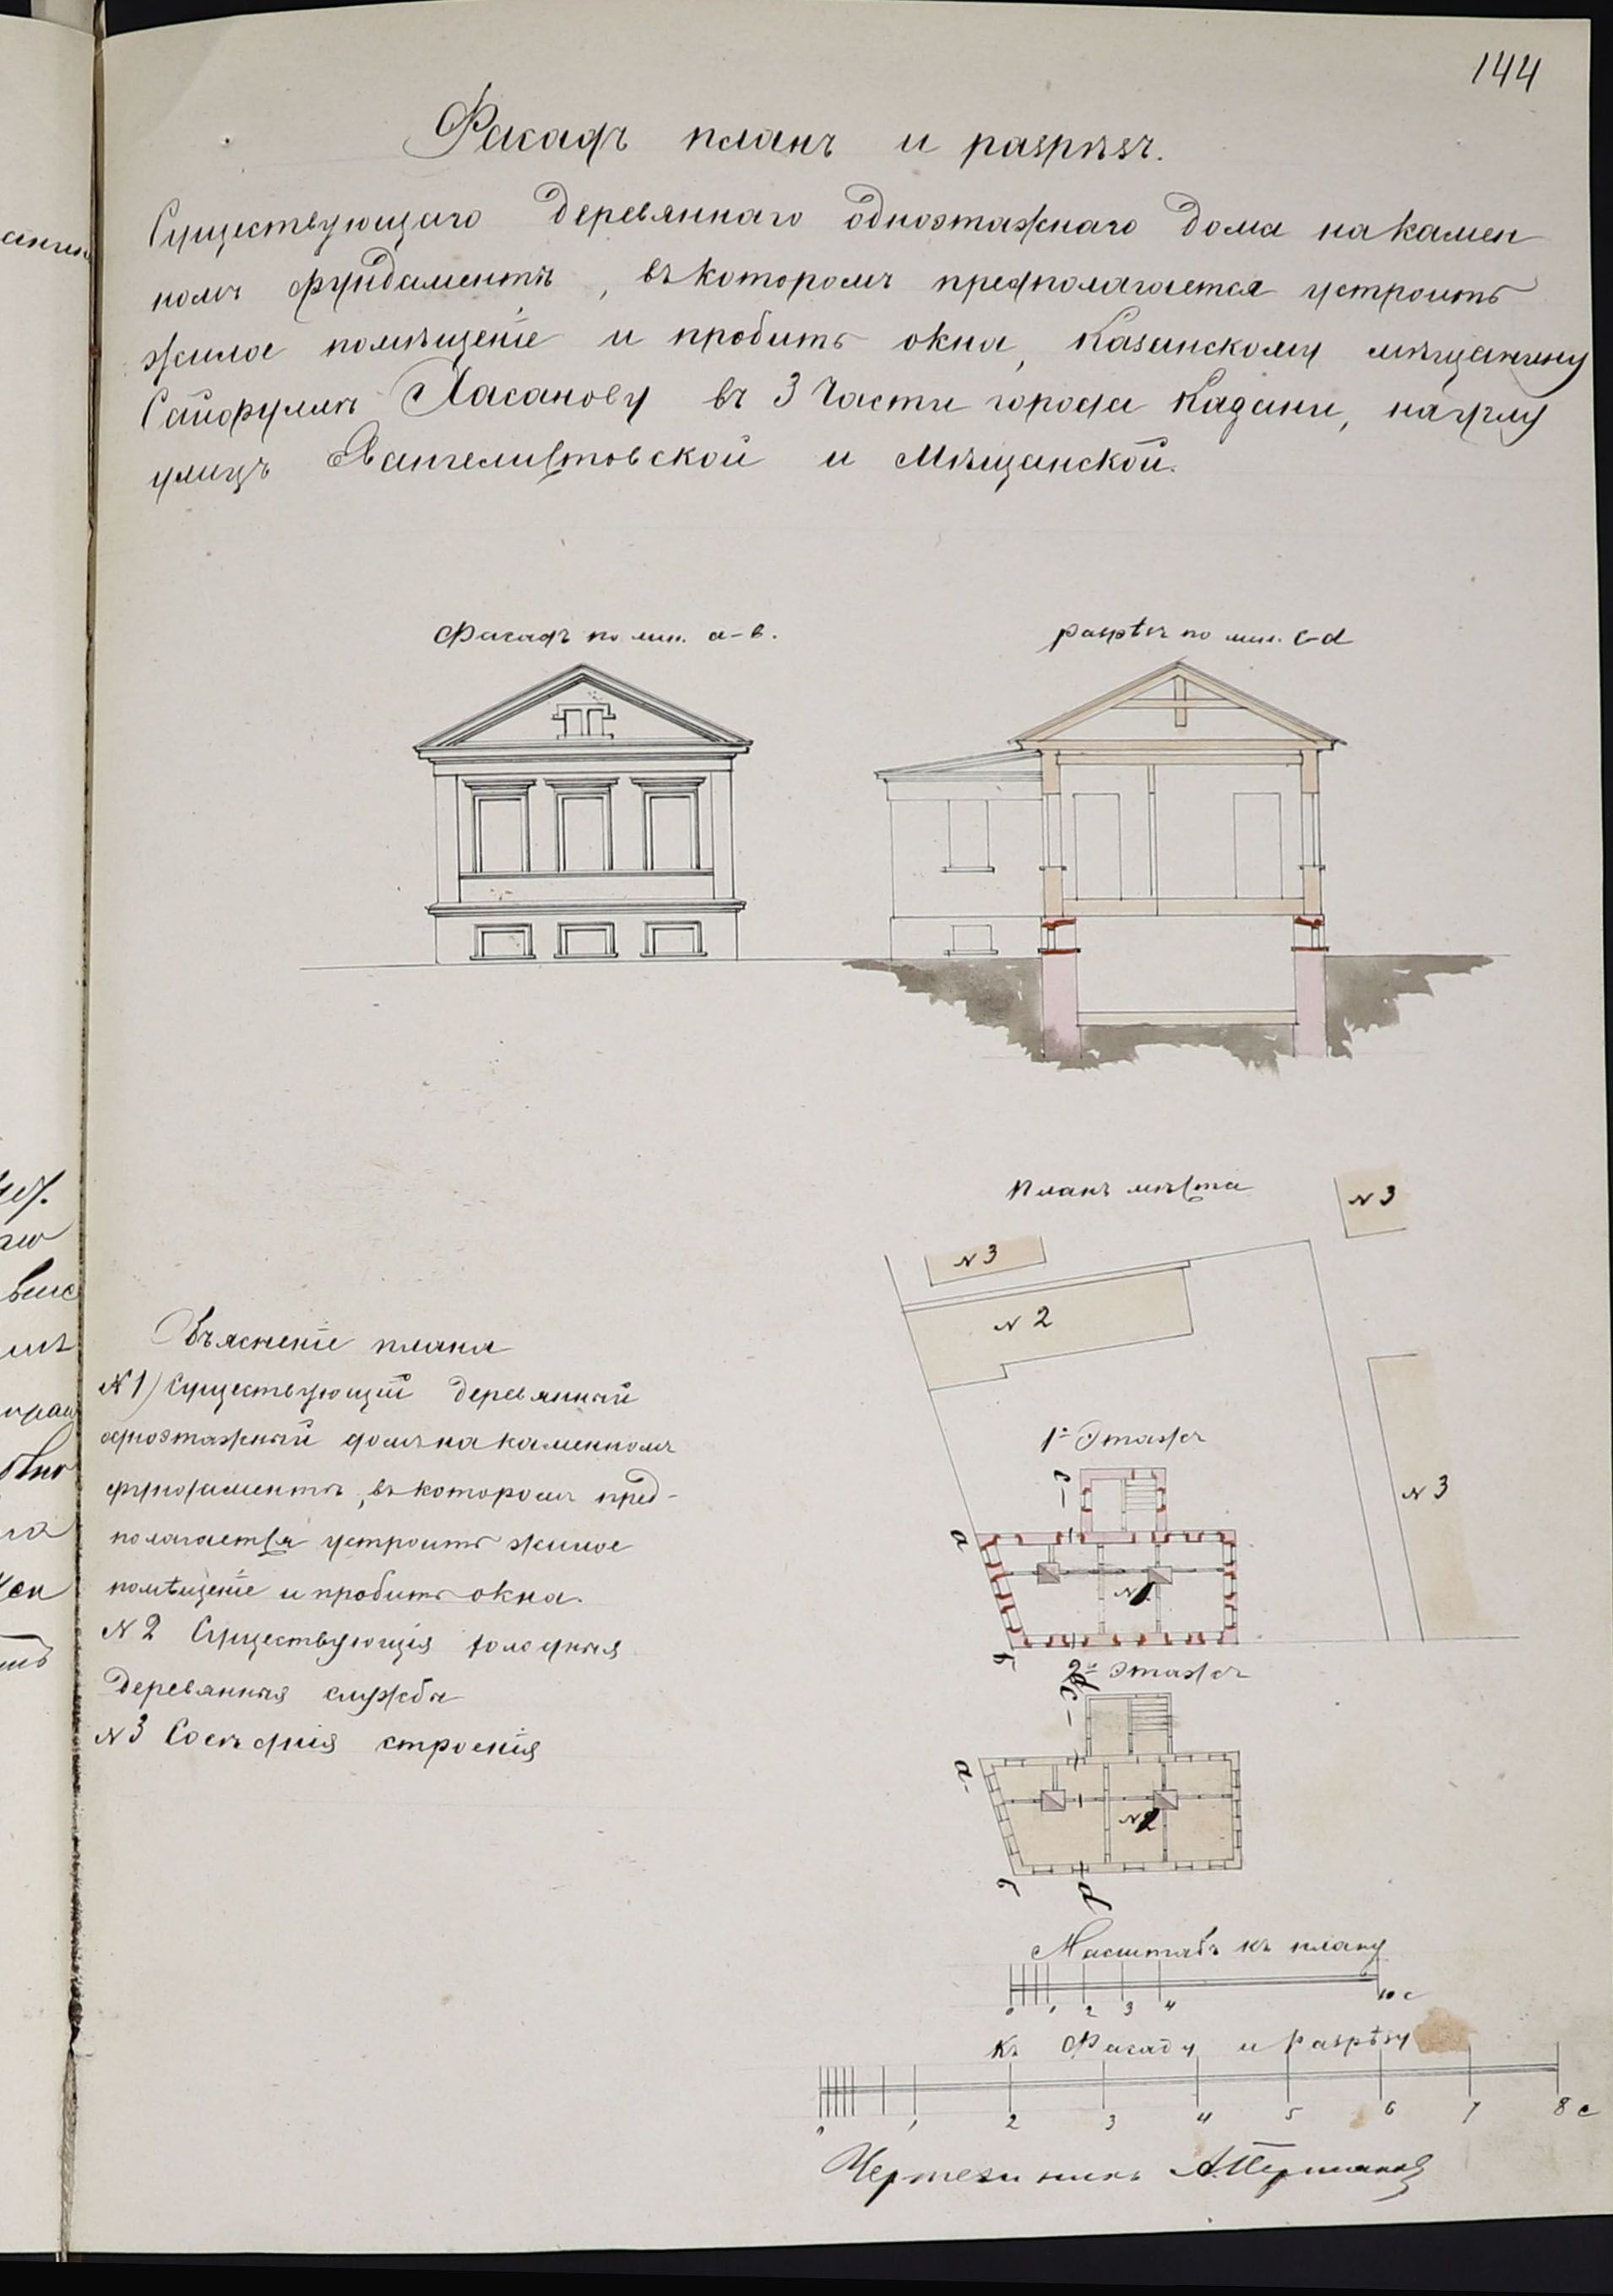 144
Фасадъ планъ и разрѣзъ.
Существующаго деревяннаго одноэтажнаго дома на камен
номъ фундаментѣ, въ которомъ предполагается устроить
жилое помѣщеніе и пробить окна, Казанскому мѣщанину
Сайфуллѣ Хасанову въ 3 Части города Казани, на углу
улицъ Евангелистовской и Мѣщанской.
Фасадъ по лин. a-b.
разрѣзъ по лин. c-d
Планъ мѣста
N 3
N 3
N 2
Объясненіе плана
N 1) Существующій деревянный
одноэтажный домъ на каменномъ
фундаментѣ, въ которомъ пред-
полагается устроить жилое
помѣщеніе и пробить окна.
N 2 Существующія холодныя
деревянныя службы
N 3 Сосѣднія строенія
1й Этажъ
N 3
c
a
N 1
b
d
2й Этажъ
c
a
N
b
d
Масштабъ къ плану
0 1 2 3 4 10 с
Къ Фасаду и Разрѣзу
0 1 2 3 4 5 6 7 8 с
Чертежникъ А.